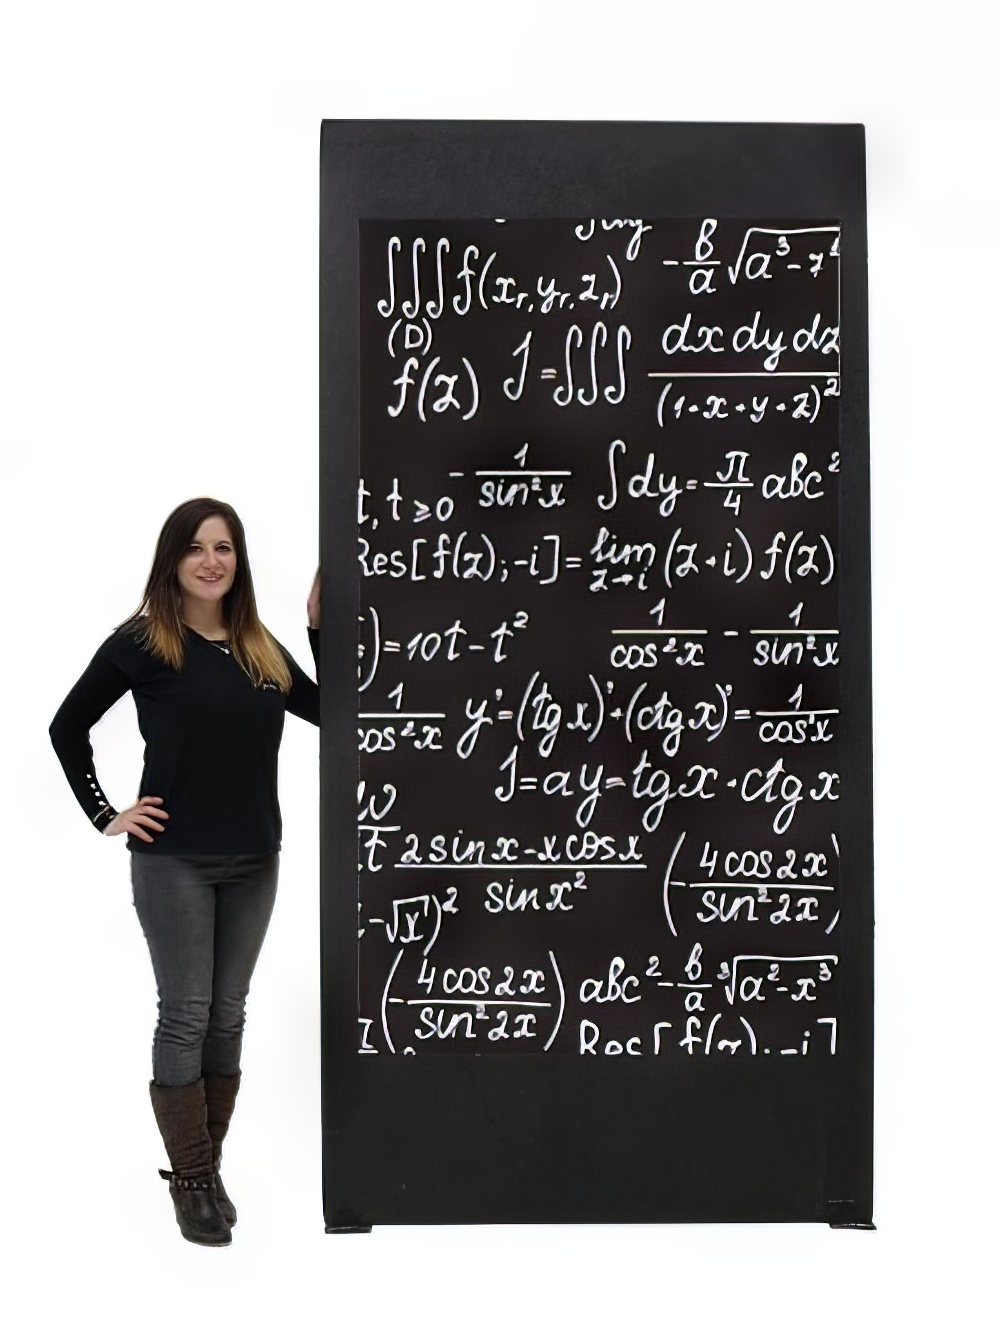 ∫∫∫f(x_r,y_r,z_r) -b/a √a³-7
(D)
f(z) J=∫∫∫ dx dy dz/(1+x+y+z)²
t, t≥0 -1/sin²x ∫dy=π/4 abc²
Res[f(z);-i]=lim z→i (z+i)f(z)
)=10t-t² 1/cos²x - 1/sin²x
1/cos²x y'=(tgx)'+(ctgx)'=1/cos²x
J=ay=tgx+ctgx
2sinx-xcosx/sinx² (-4cos2x/sin²2x)
-√x)²
(-4cos2x/sin²2x) abc²-b/a ³√a²-x³
f(z);-i]